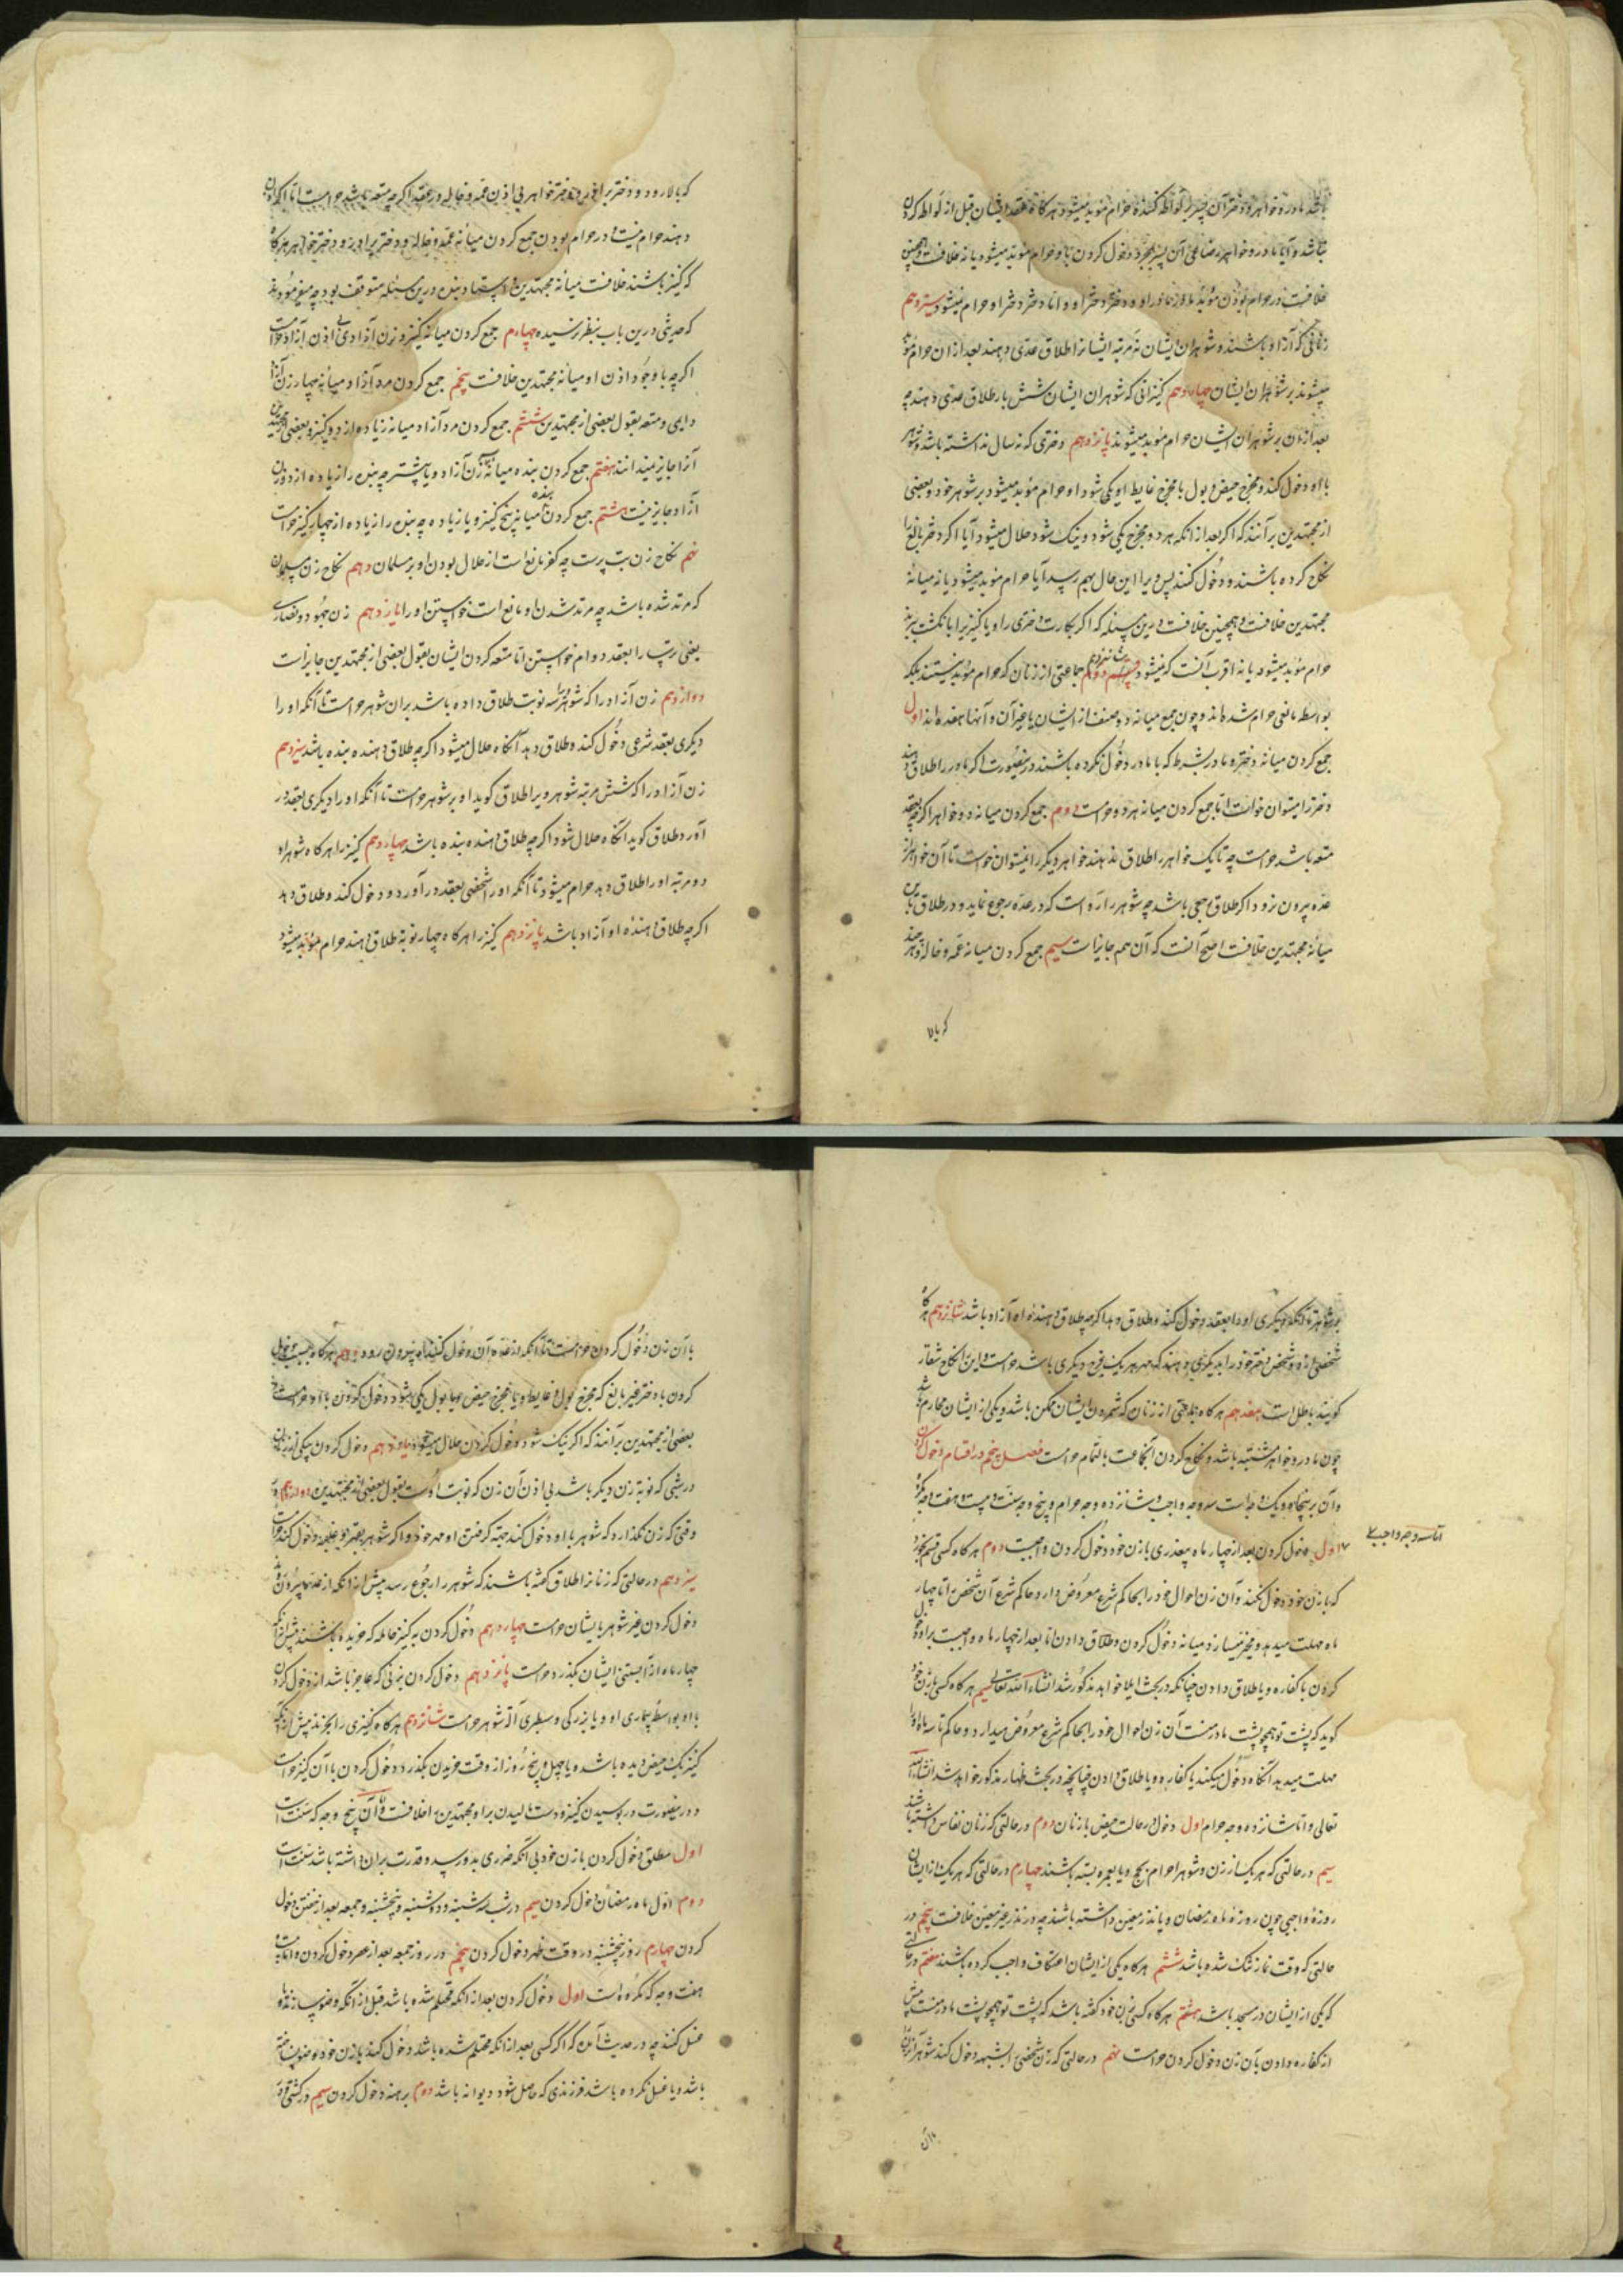 باشد مادر و خواهر و دختر آن پسر بر لواطه کننده حرام مؤبد میشود هرکاه عقد ایشان قبل از لواطه کردن
نباشد و آیا مادر و خواهر رضاعی آن پسر بمجرد دخول کردن با و حرام مؤبد میشود یا نه خلافست و همچنین
خلافست در حرام بودن مؤبد مادر مادر او و دختر دختر او و اما دختر دختر او حرام نمیشود سیزدهم
زنانی که آزاد باشند و شوهران ایشان نه مرتبه ایشانرا طلاق عدی دهند بعد از ان حرام مؤبد
میشوند بر شوهران ایشان چهاردهم کنیزانی که شوهران ایشان شش بار طلاق عدی دهند چه
بعد از ان بر شوهران ایشان حرام مؤبد میشوند پانزدهم دختری که نه سال نداشته باشد و شوهر
با او دخول کند و مخرج حیض و بول با مخرج غایط او یکی شود او حرام مؤبد میشود بر شوهر خود و بعضی
از مجتهدین بر آنند که اکر بعد از انکه هر دو مخرج یکی شود و نیک شود حلال میشود و آیا اکر دختر بالغ را
نکاح کرده باشند و دخول کنند پس ویرا این حال بهم رسد آیا حرام مؤبد میشود یا نه میانه
مجتهدین خلافست و همچنین خلافست درین مسئله که اکر بکارت دختری را و یا کنیزیرا بانکشت ببرند
حرام مؤبد میشود یا نه اقرب آنست که نمیشود شانزدهم قسم دوم جماعتی از زنان که حرام مؤبد نیستند بلکه
بواسطه مانعی حرام شده اند و چون جمع میانه دو صنف از ایشان یا غیر آن و آنها هفده اند اول
جمع کردن میانه دختر و مادر بشرط که با مادر دخول نکرده باشند درینصورت اکر مادر را طلاق دهند
دختر را میتوان خواست اما جمع کردن میانه هر دو حرامست دوم جمع کردن میانه دو خواهر اکرچه بعقد
متعه باشد حرامست چه تا یک خواهر را طلاق ندهند خواهر دیکر را نمیتوان خواست تا آن خواهر از
عده بیرون نرود اکر طلاق رجعی باشد چه شوهر را رواست که در عده رجوع نماید و در طلاق باین
میانه مجتهدین خلافست اصح آنست که آن هم جایز است سیم جمع کردن میانه عمه و خاله و هر چند
که بالا
که بالا رود و دختر برادر و دختر خواهر بی اذن عمه و خاله در عقد اکرچه متعه باشد حرامست اما اکر اذن
دهند حرام نیست و در حرام بودن جمع کردن میانه عمه و خاله و دختر برادر و دختر خواهر هرکاه
که کنیز باشند خلافست میانه مجتهدین و استاد بنده درین مسئله متوقف بود چه میفرمودند
که حدیثی درین باب بنظر نرسیده چهارم جمع کردن میانه کنیز و زن آزاد بی اذن آزاد حرامست
اکرچه با وجود اذن او میانه مجتهدین خلافست پنجم جمع کردن مرد آزاد میانه چهار زن آزاد
دایمی و متعه بقول بعضی از مجتهدین ششم جمع کردن مرد آزاد میانه زیاده از دو کنیز و بعضی از مجتهدین
آنرا جایز میدانند هفتم جمع کردن بنده میانه سه زن آزاد و یا بیشتر چه بنده را زیاده از دو زن
آزاد جایز نیست هشتم جمع کردن بنده میانه پنج کنیز و یا زیاده چه بنده را زیاده از چهار کنیز حرامست
نهم نکاح زن بت پرست چه کفر مانع است از حلال بودن او بر مسلمان دهم نکاح زن مسلمان
که مرتد شده باشد چه مرتد شدن او مانع است خواستن او را یازدهم زن جهود و نصاری
یعنی ترسا را بعقد دوام خواستن اما متعه کردن ایشان بقول بعضی از مجتهدین جایز است
دوازدهم زن آزاد را که شوهر او را سه نوبت طلاق داده باشد بران شوهر حرامست تا آنکه او را
دیکری بعقد شرعی دخول کند و طلاق دهد آنکاه حلال میشود اکرچه طلاق دهنده بنده باشد سیزدهم
زن آزاد را که شش مرتبه شوهر ویرا طلاق کوید او بر شوهر حرامست تا آنکه او را دیکری بعقد در
آورد و طلاق کوید آنکاه حلال شود اکرچه طلاق دهنده بنده باشد چهاردهم کنیز را هرکاه شوهر او
دو مرتبه او را طلاق دهد حرام میشود تا آنکه او را شخصی بعقد در آورد و دخول کند و طلاق دهد
اکرچه طلاق دهنده او آزاد باشد پانزدهم کنیز را هرکاه چهار نوبة طلاق دهند حرام مؤبد میشود
بر شوهر تا آنکه دیکری او را بعقد دخول کند و طلاق دهد اکرچه طلاق دهنده او آزاد باشد شانزدهم هرکاه
شخصی زن و شخص دختر خود را بدیکری دهند که مهر هر یک فرج دیکری باشد حرامست و این نکاح شغار
کویند باطل است هفدهم هرکاه جماعتی از زنان که شمردن ایشان ممکن باشد و یکی از ایشان محارم باشد
چون مادر و خواهر مشتبه باشد و نکاح کردن آنجماعت بالتمام حرامست فصل پنجم در اقسام دخول کردن
و آن بر پنجاه و یک وجه است سه وجه واجب و شانزده وجه حرام و پنج وجه سنت و بیست و هفت وجه مکروه
اما سه وجه واجب
اول دخول کردن بعد از چهار ماه بیعذری با زن خود دخول کردن واجبست دوم هرکاه کسی قسم بخورد
که با زن خود دخول نکند و آن زن احوال خود را بحاکم شرع معروض دارد حاکم شرع آن شخص را تا چهار
ماه مهلت میدهد و مخیر میسازد میانه دخول کردن و طلاق دادن اما بعد از چهار ماه واجبست بر او دخول
کردن با کفاره و یا طلاق دادن چنانکه در بحث ایلا خواهد مذکور شد انشاء الله تعالی سیم هرکاه کسی با زن خود
کوید که پشت تو همچو پشت مادر منست آن زن احوال خود را بحاکم شرع معروض میدارد و حاکم تا سه ماه او را
مهلت میدهد آنکاه دخول میکند با کفاره و یا طلاق دادن چنانچه در بحث ظهار مذکور خواهد شد انشاءالله
تعالی و اما شانزده وجه حرام اول دخول در حالت حیض با زنان دوم در حالتی که زنان نفاس داشته باشند
سیم در حالتی که هر یک از زن و شوهر احرام بحج و یا بعمره بسته باشند چهارم در حالتی که هر یک از ایشان
روزه واجبی چون روزه ماه رمضان و یا نذر معین داشته باشند چه در نذر غیر معین خلافست پنجم در
حالتی که وقت نماز تنک شده باشد ششم هرکاه یکی از ایشان اعتکاف واجب کرده باشند هفتم در حالتی
که یکی از ایشان در مسجد باشد هشتم هرکاه کسی بزن خود کفته باشد که پشت تو همچو پشت مادر منست پیش
از کفاره دادن بآن زن دخول کردن حرامست نهم در حالتی که زن شخصی را بشبهه دخول کند شوهر آنزن را
با آن
با آن زن دخول کردن حرامست تا آنکه از عده آن دخول کننده بیرون رود دهم هرکاه بسبب دخول
کردن با دختر غیر بالغ که مخرج بول و غایط و یا مخرج حیض و یا بول یکی شود دخول کردن با او حرامست
بعضی از مجتهدین بر آنند که اکر نیک شود دخول کردن حلال میشود یازدهم دخول کردن بیکی از زنان
در شبی که نوبة زن دیکر باشد بی اذن آن زن که نوبت اوست بقول بعضی از مجتهدین دوازدهم در
وقتی که زن نکذارد که شوهر با او دخول کند جهته کرفتن او مهر خود و اکر شوهر بقهر و غلبه دخول کند حرامست
سیزدهم در حالتی که زنانرا طلاق کفته باشند که شوهر را رجوع رسد پیش از انکه از عده بیرون روند
دخول کردن غیر شوهر بایشان حرامست چهاردهم دخول کردن به کنیز حامله که خریده باشند پیش از آنکه
چهار ماه از آبستنی ایشان بکذرد حرامست پانزدهم دخول کردن بزنی که عاجز باشد از دخول کردن
با او بواسطه بیماری او و یا بزرکی و سطبری آلة شوهر حرامست شانزدهم هرکاه کنیزی را بخرند پیش از آنکه
کنیز یک حیض دیده باشد و یا چهل و پنج روز از وقت خریدن بکذرد دخول کردن با آن کنیز حرامست
و درینصورت در بوسیدن کنیز و دست مالیدن براو مجتهدین را خلافست و اما آن پنج وجه که سنت است
اول مطلق دخول کردن با زن خود بی آنکه ضرری بدو رسد و قدرت بران داشته باشد سنت است
دوم اول ماه رمضان دخول کردن سیم در شب سه شنبه و دوشنبه و پنجشنبه و جمعه بعد از خفتن دخول
کردن چهارم روز پنجشنبه در وقت ظهر دخول کردن پنجم در روز جمعه بعد از عصر دخول کردن و اما بیست
هفت وجه که مکروه است اول دخول کردن بعد از انکه محتلم شده باشد قبل از آنکه وضو بسازند و یا
غسل کنند چه در حدیث آمده که اکر کسی بعد از انکه محتلم شده باشد دخول کند با زن خود و وضو نساخته
باشد و یا غسل نکرده باشد فرزندی که حاصل شود دیوانه باشد دوم برهنه دخول کردن سیم در کشتی و در